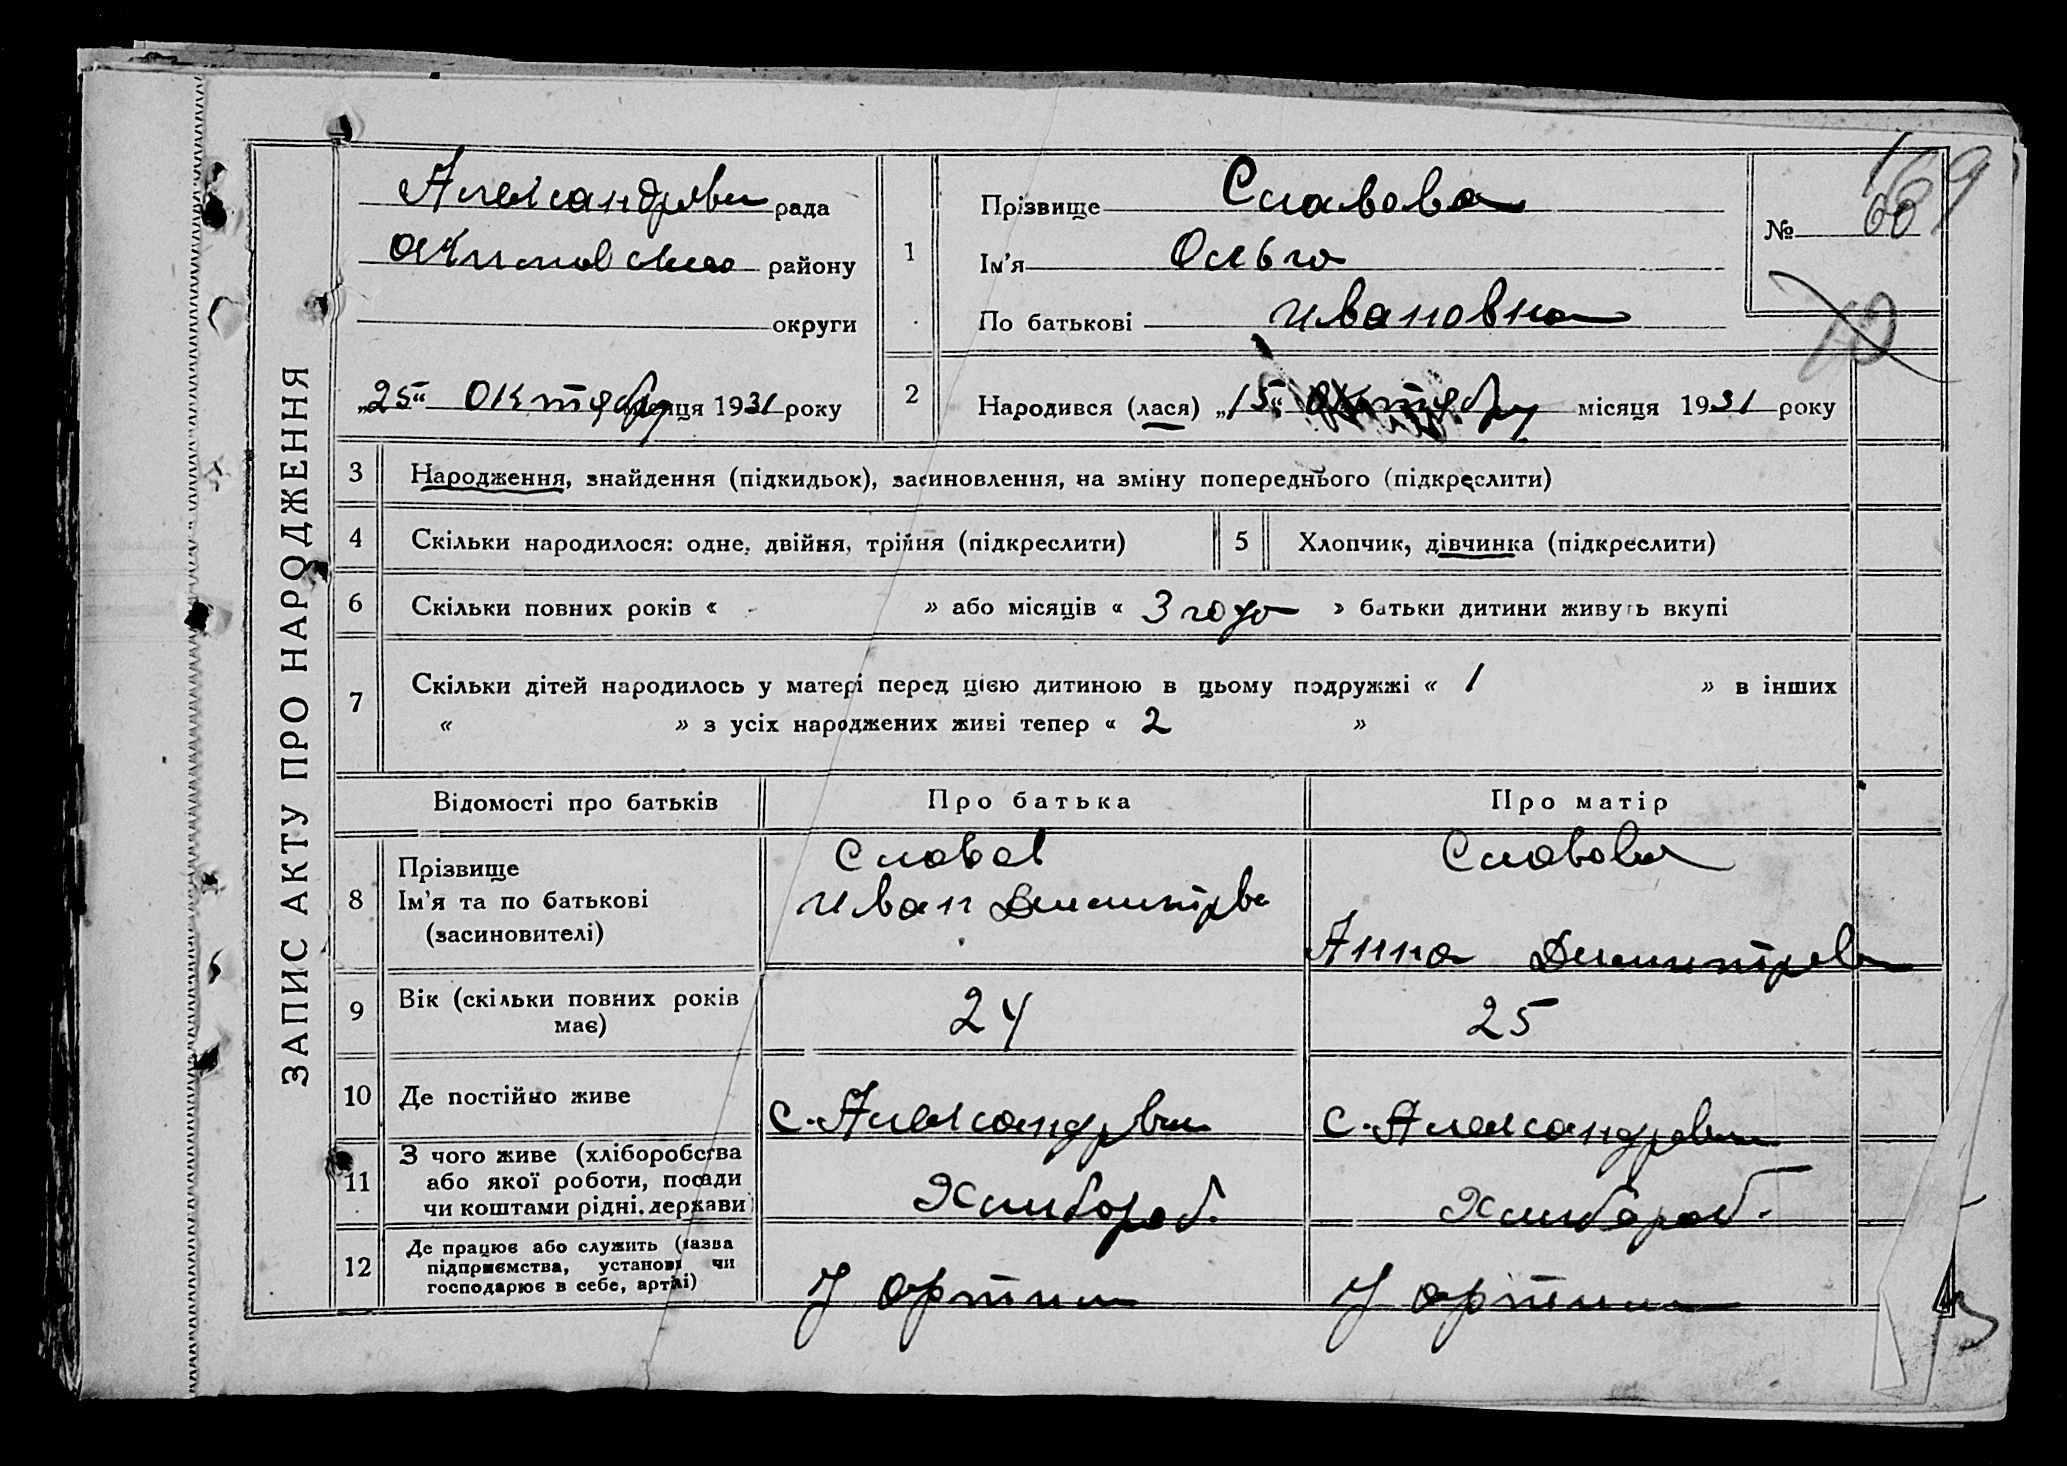 ЗАПИС АКТУ ПРО НАРОДЖЕННЯ
Александревка рада
Акимовского району
округи
„25“ Октября місяця 1931 року
1
Прізвище Славова
Ім'я Ольга
По батькові Ивановна
№ 66
169
10
2 Народився (лася) „15“ Октября місяця 1931 року
3 Народження, знайдення (підкидьок), засиновлення, на зміну попереднього (підкреслити)
4 Скільки народилося: одне, двійня, трійня (підкреслити) 5 Хлопчик, дівчинка (підкреслити)
6 Скільки повних років « - » або місяців « 3 года » батьки дитини живуть вкупі
7 Скільки дітей народилось у матері перед цією дитиною в цьому подружжі « 1 » в інших
« » з усіх народжених живі тепер « 2 »
Відомості про батьків Про батька Про матір
8 Прізвище Славов Славова
Ім'я та по батькові Иван Димитрев Анна Димитрев
(засиновителі)
9 Вік (скільки повних років має) 24 25
10 Де постійно живе с. Александревка с. Александревка
11 З чого живе (хліборобства
або якої роботи, посади
чи коштами рідні, держави) Хлибороб. Хлибороб.
12 Де працює або служить (назва
підприємства, установи чи
господарює в себе, артілі) У артили У артили